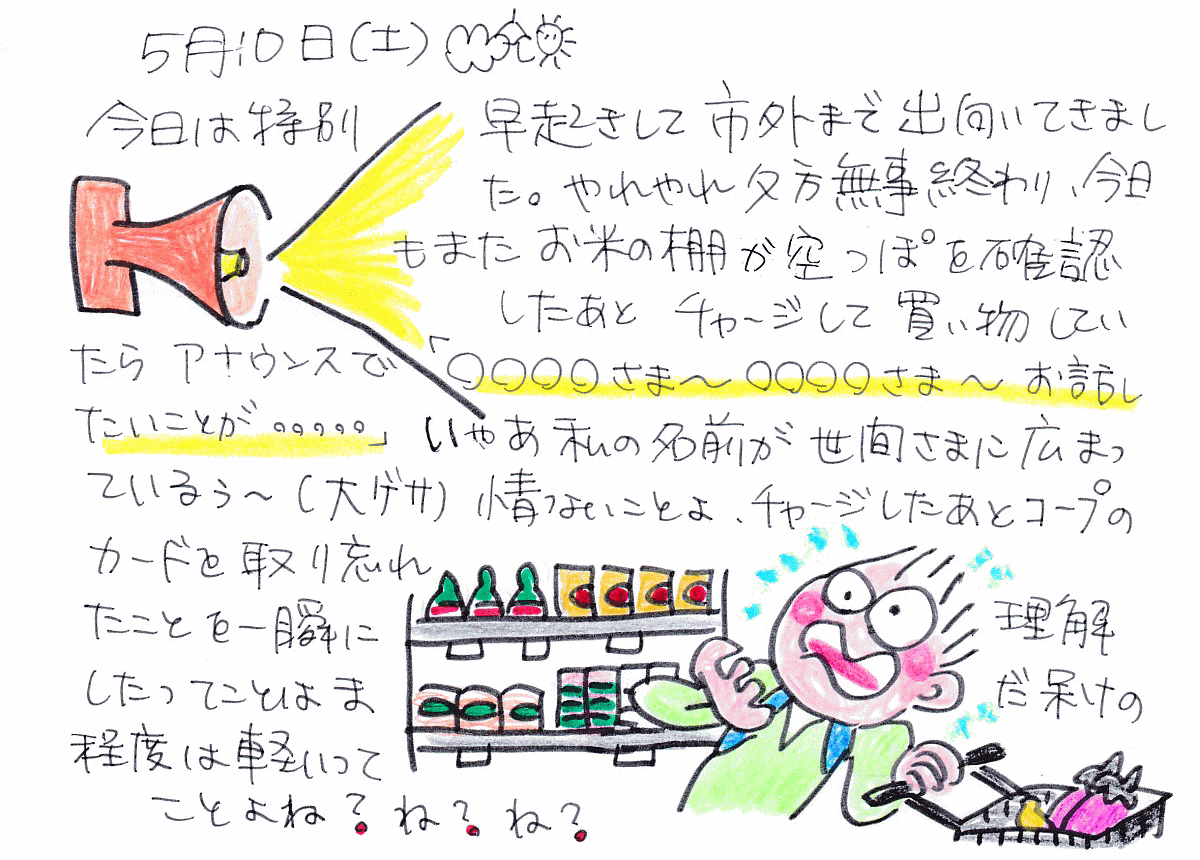 5月10日(土)
今日は特別 早起きして市外まで出向いてきまし
た。やれやれ夕方無事終わり、今日
もまたお米の棚が空っぽを確認
したあと チャージして買い物してい
たら アナウンスで「○○○○さま〜○○○○さま〜お話し
たいことが。。。。。」いやあ私の名前が世間さまに広まっ
ているぅ〜(大ゲサ)情けないことよ、チャージしたあとコープの
カードを取り忘れ
たことを一瞬に 理解
したってことはま だ呆けの
程度は軽いって
ことよね?ね?ね?